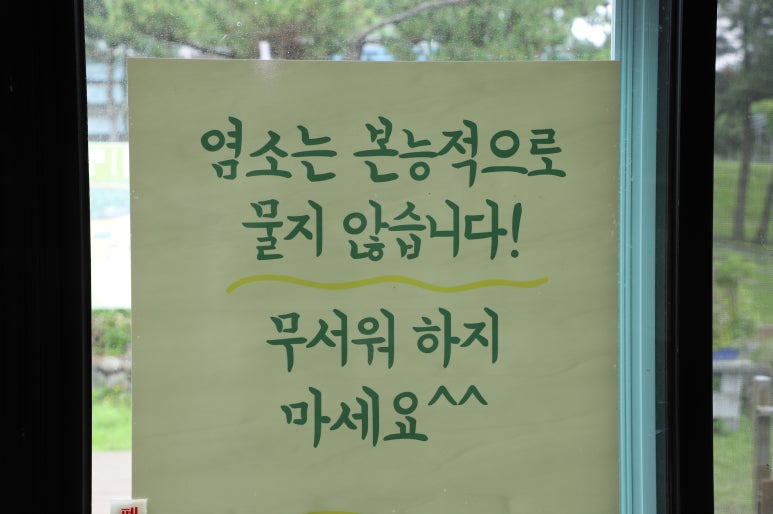 염소는 본능적으로
물지 않습니다!
무서워 하지
마세요^^